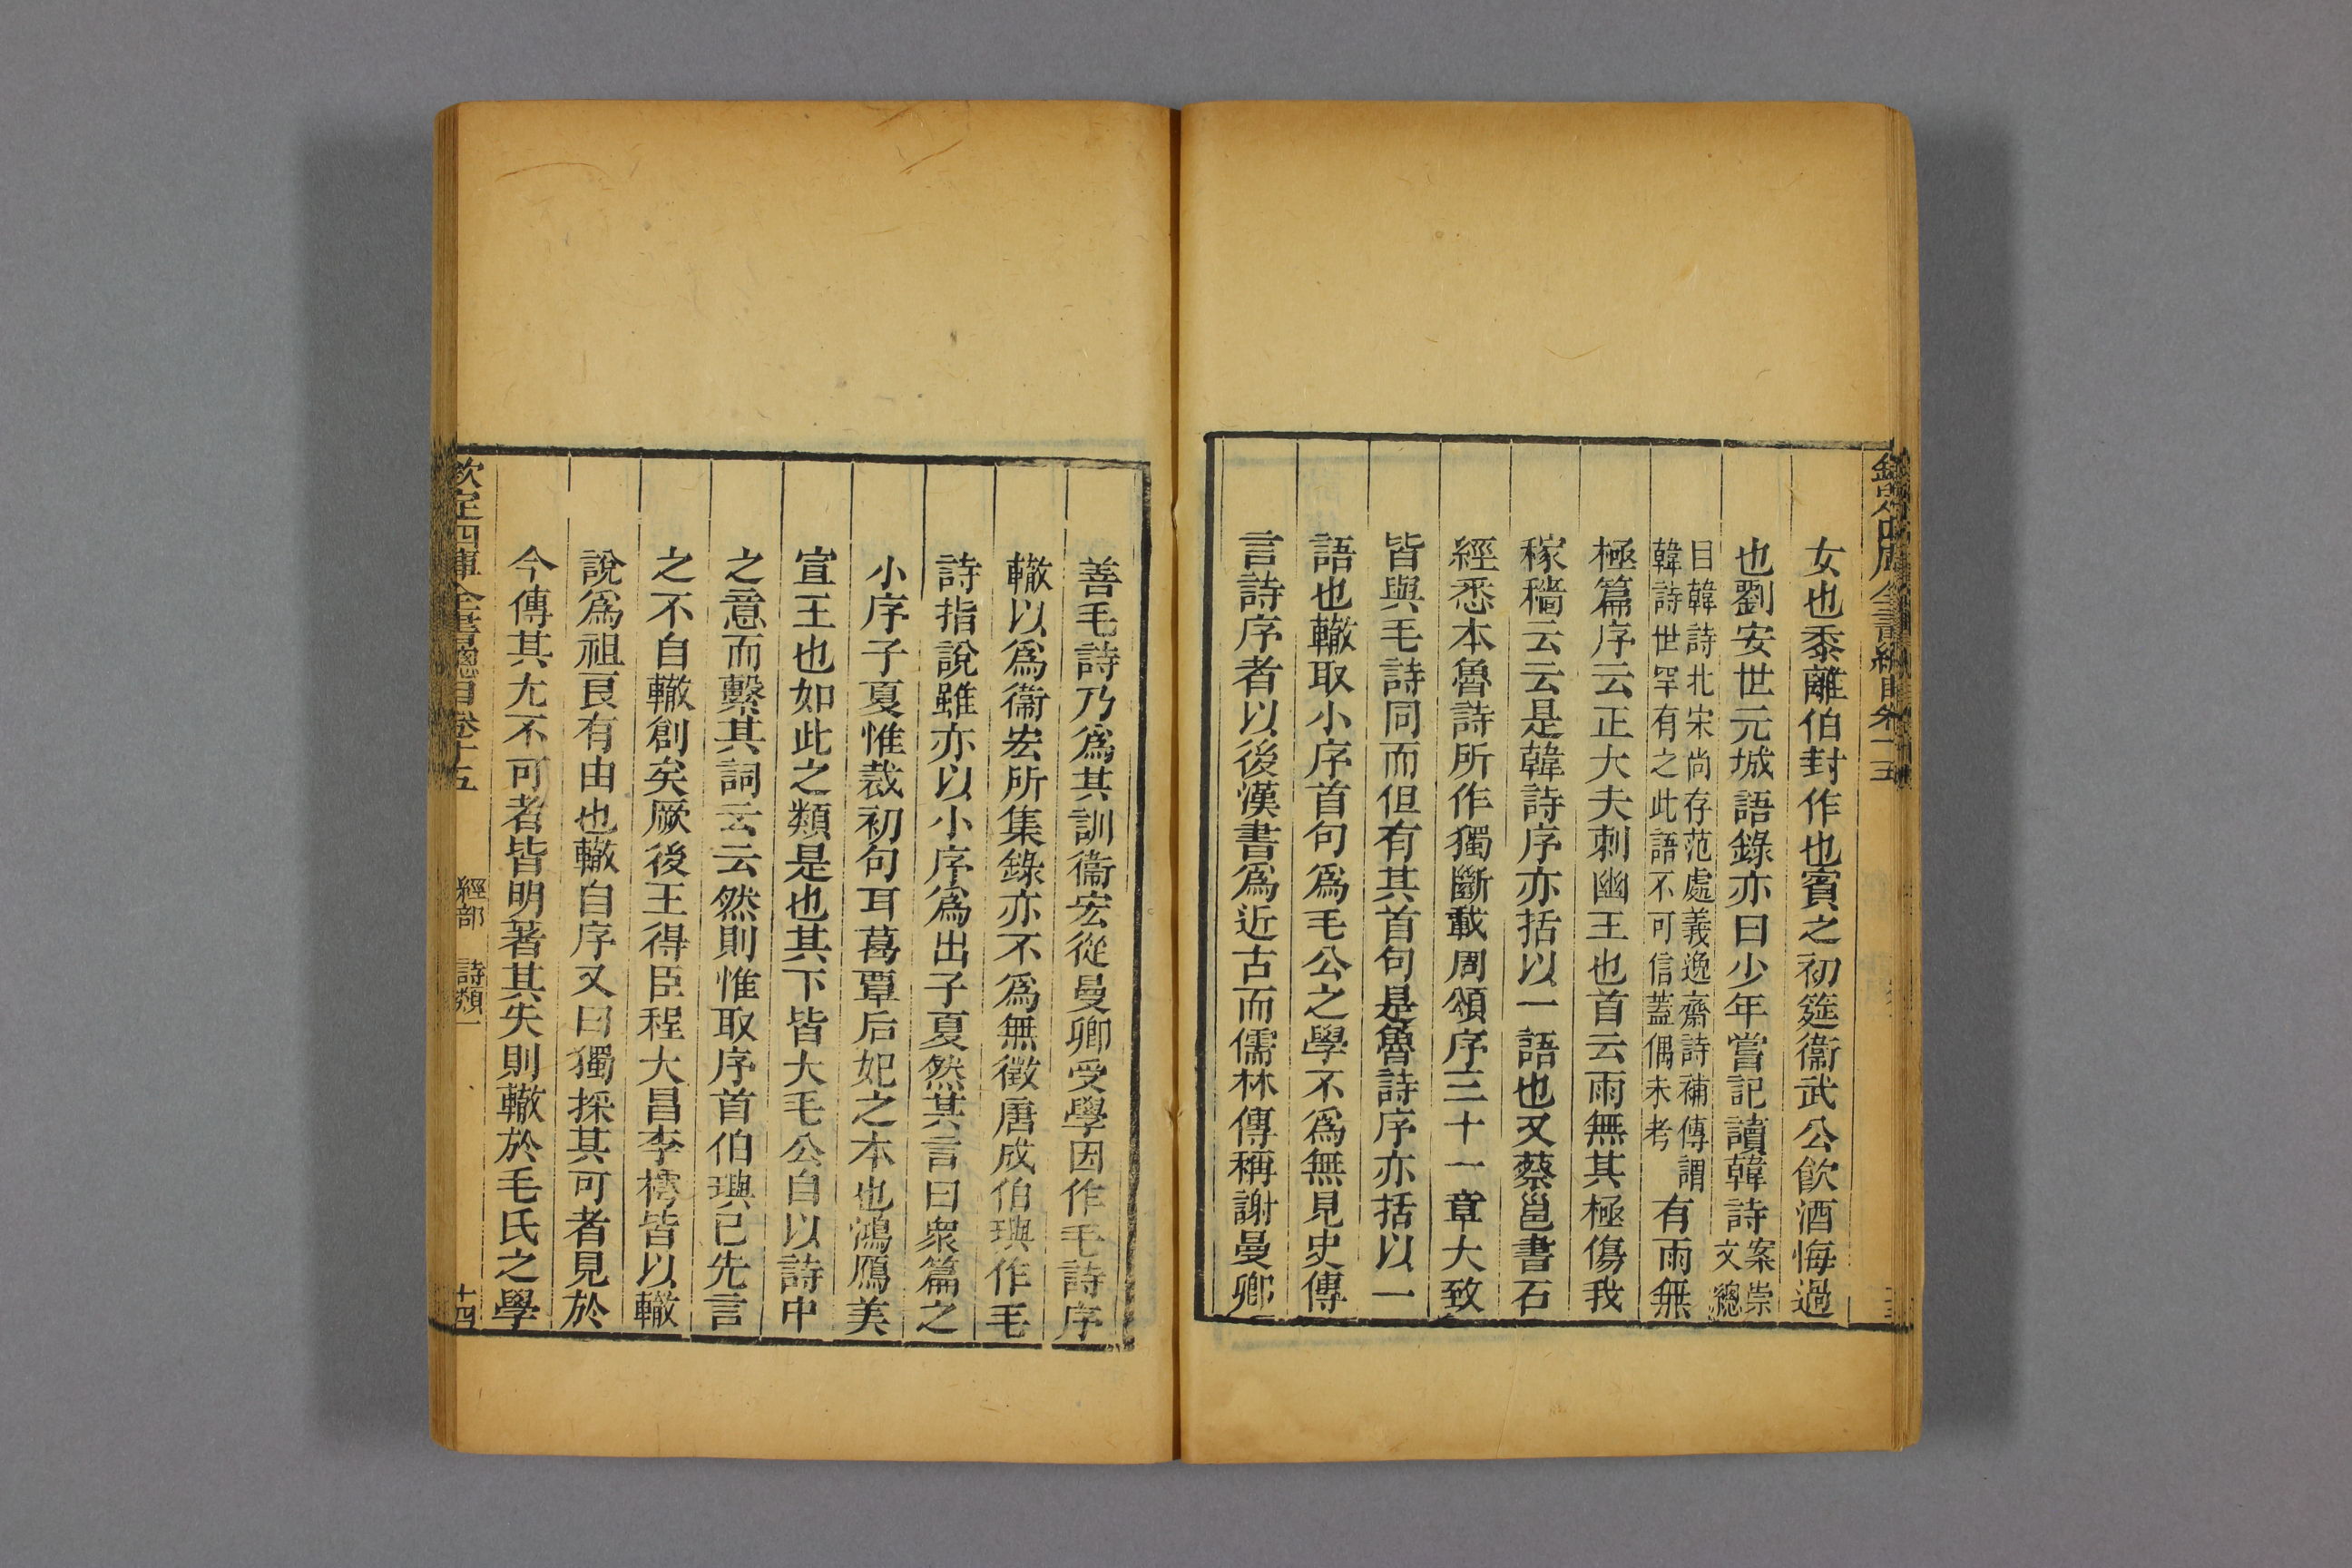 女也黍離伯封作也賓之初筵衞武公飮酒悔過
也劉安世元城語錄亦曰少年嘗記讀韓詩案崇文總
目韓詩北宋尚存范處義逸齋詩補傳謂韓詩世罕有之此語不可信蓋偶未考有雨無
極篇序云正大夫刺幽王也首云雨無其極傷我
稼穡云云是韓詩序亦括以一語也又蔡邕書石
經悉本魯詩所作獨斷載周頌序三十一章大致
皆與毛詩同而但有其首句是魯詩序亦括以一
語也轍取小序首句爲毛公之學不爲無見史傳
言詩序者以後漢書爲近古而儒林傳稱謝曼卿
善毛詩乃爲其訓衞宏從曼卿受學因作毛詩序
轍以爲衞宏所集錄亦不爲無徵唐成伯璵作毛
詩指說雖亦以小序爲出子夏然其言曰衆篇之
小序子夏惟裁初句耳葛覃后妃之本也鴻鴈美
宣王也如此之類是也其下皆大毛公自以詩中
之意而繫其詞云云然則惟取序首伯璵已先言
之不自轍創矣厥後王得臣程大昌李樗皆以轍
說爲祖良有由也轍自序又曰獨採其可者見於
今傳其尤不可者皆明著其失則轍於毛氏之學
欽定四庫全書總目卷十五 經部 詩類一 十四